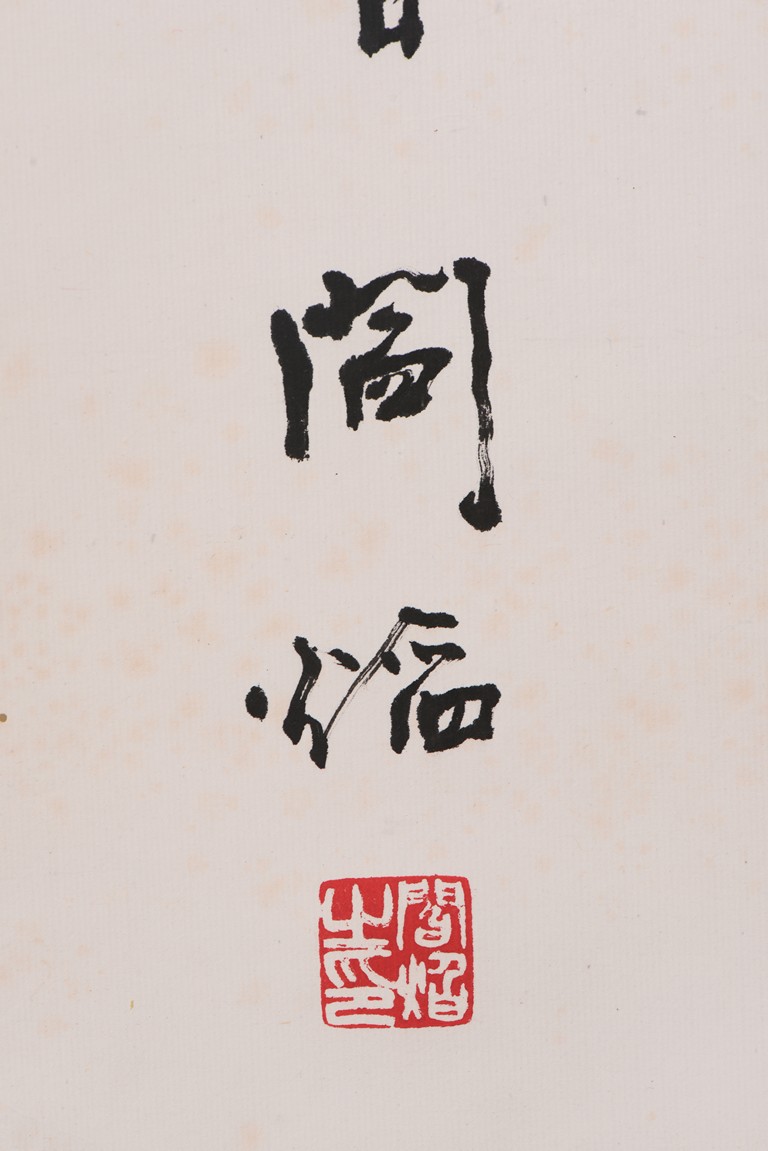 閻
焰
閻焰
之印